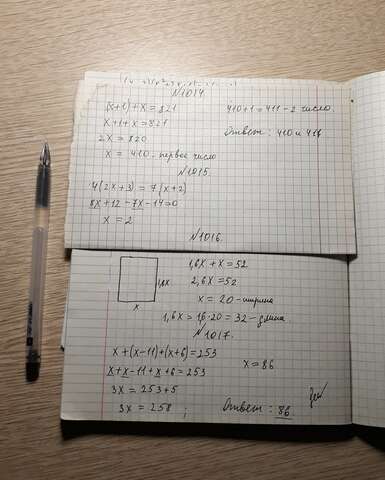 N1014
(x+1)+x=821
x+1+x=821
2x=820
x = 410 - первое число
410+1=411 - 2 число.
Ответ: 410 и 411
N1015.
4(2x+3)=7(x+2)
8x+12-7x-14=0
x=2
N1016.
1,6x
x
1,6x+x=52
2,6x=52
x=20-ширина
1,6x=1,6·20=32-длина
N1017.
x+(x-11)+(x+6)=253
x+x-11+x+6=253
3x=253+5
3x=258;
x=86
Ответ: 86.